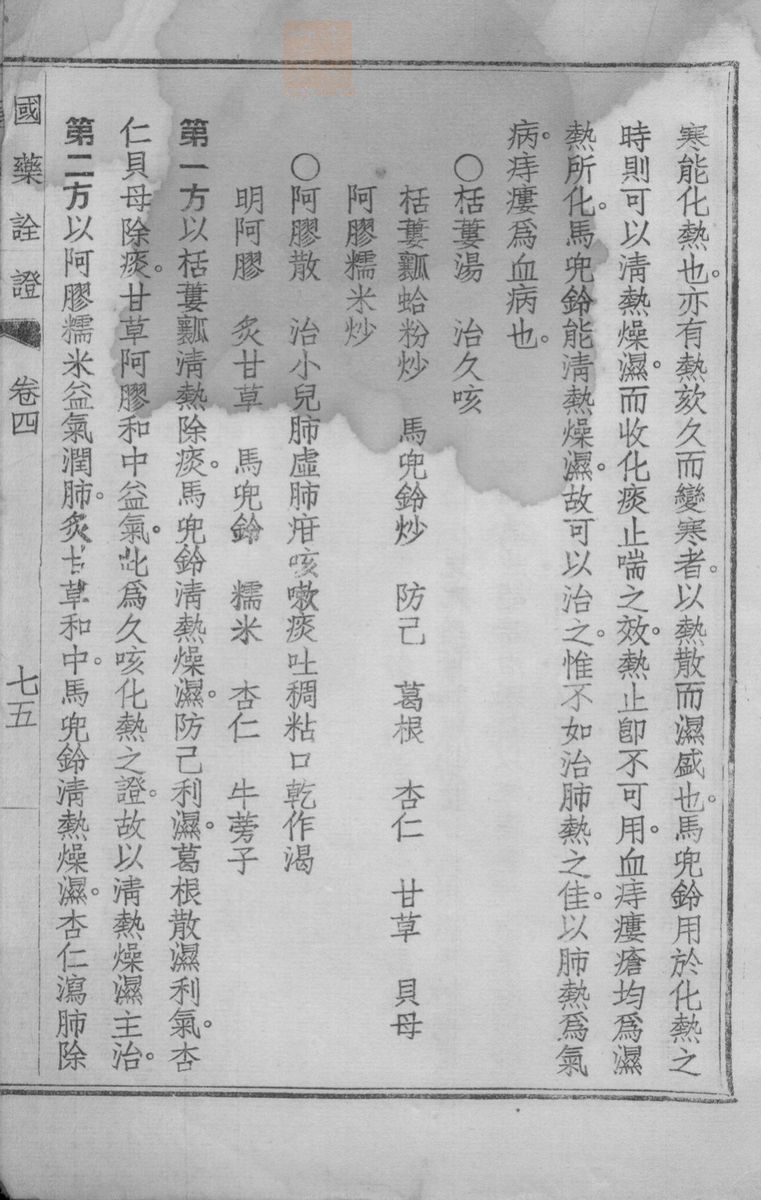 寒能化熱也。亦有熱欬久而變寒者。以熱散而濕盛也。馬兜鈴用於化熱之
時則可以清熱燥濕。而收化痰止喘之效。熱止卽不可用。血痔瘻瘡均爲濕
熱所化。馬兜鈴能清熱燥濕。故可以治之。惟不如治肺熱之佳。以肺熱爲氣
病。痔瘻爲血病也。
○栝蔞湯 治久咳
栝蔞瓤蛤粉炒 馬兜鈴炒 防己 葛根 杏仁 甘草 貝母
阿膠糯米炒
○阿膠散 治小兒肺虛肺疳咳嗽痰吐稠粘口乾作渴
明阿膠 炙甘草 馬兜鈴 糯米 杏仁 牛蒡子
第一方以栝蔞瓤清熱除痰。馬兜鈴清熱燥濕。防己利濕。葛根散濕利氣。杏
仁貝母除痰。甘草阿膠和中益氣。此爲久咳化熱之證。故以清熱燥濕主治。
第二方以阿膠糯米益氣潤肺。炙甘草和中。馬兜鈴清熱燥濕。杏仁瀉肺除
國藥詮證 卷四 七五